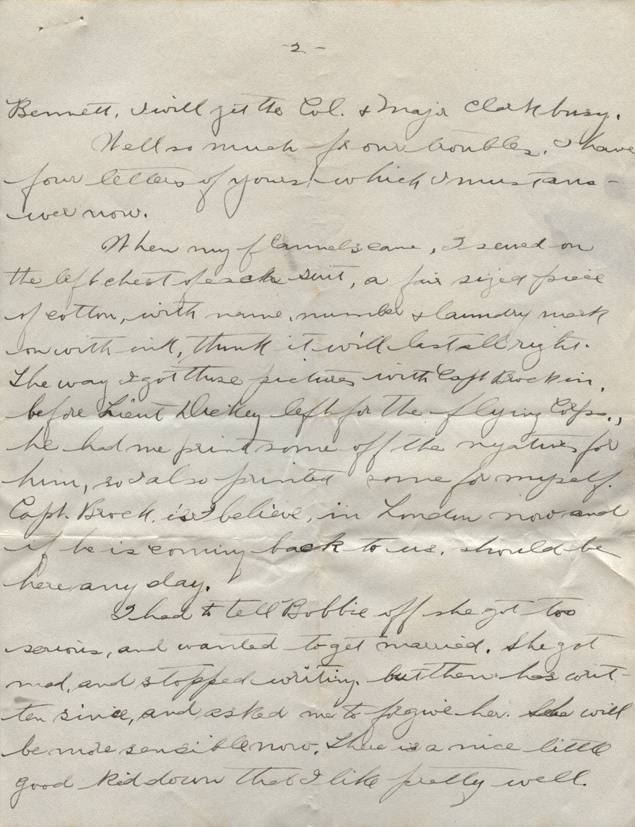 - 2 -
Bennett, I will get the Col. & Major Clark busy.
Well so much for our troubles. I have
four letters of yours which I must ans-
wer now.
When my flannels came, I sewed on
the left chest of each suit, a fair sized piece
of cotton, with name, number & laundry mark
on with ink, think it will last all right.
The way I got those pictures with Capt Brock in,
before Lieut Dickey left for the flying Corps.,
he had me print some off the negatives for
him, so I also printed some for myself.
Capt. Brock is I believe, in London now and
if he is coming back to us, should be
here any day.
I had to tell Bobbie off she got too
serious, and wanted to get married. She got
mad, and stopped writing, but then has writ-
ten since, and asked me to forgive her. She will
be more sensible now. There is a nice little
good kid down there I like pretty well.